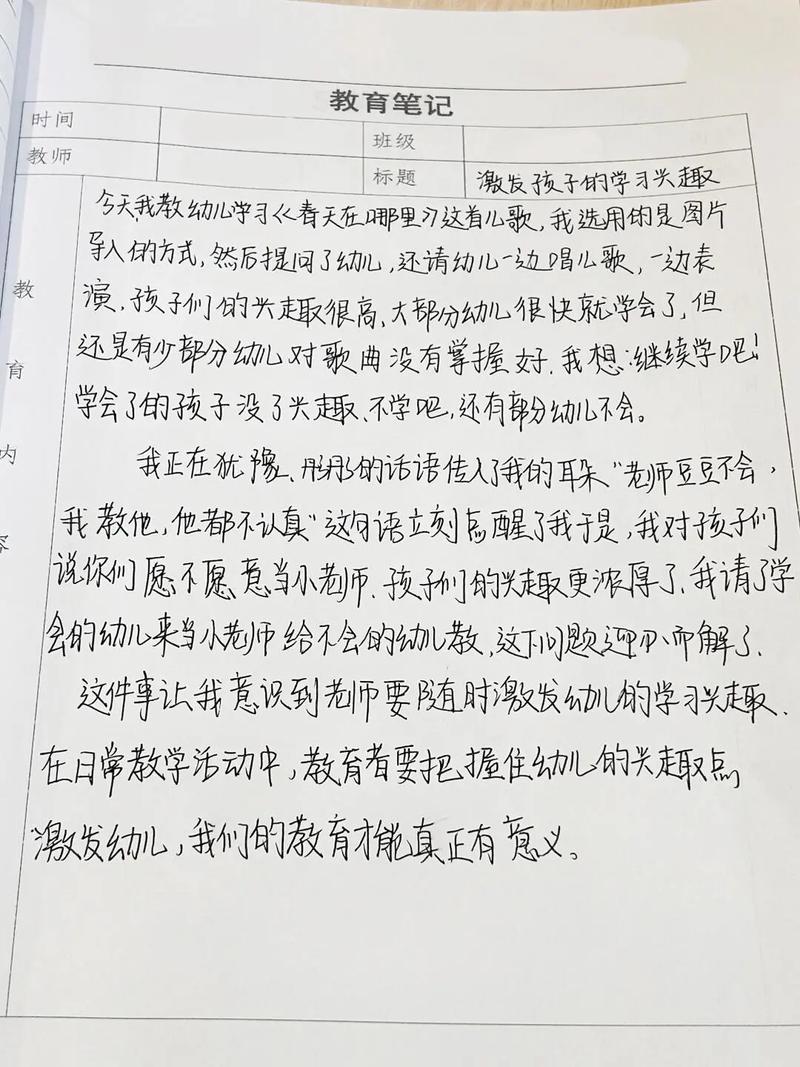 教育笔记
时间
班级
教师
标题 激发孩子的学习兴趣
教育内容
今天,我教幼儿学习《春天在哪里》这首儿歌,我选用的是图片
导入的方式,然后提问了幼儿,还请幼儿一边唱儿歌,一边表
演、孩子们的兴趣很高、大部分幼儿很快就学会了,但
还是有少部分幼儿对歌曲没有掌握好、我想:继续学吧!
学会了的孩子没了兴趣、不学吧,还有部分幼儿不会。
我正在犹豫、彤彤的话语传入了我的耳朵"老师豆豆不会,
我教他,他都不认真"这句话立刻点醒了我于是,我对孩子们
说你们愿不愿意当小老师、孩子们的兴趣更浓厚了、我请了学
会的幼儿来当小老师给不会的幼儿教,这下问题迎刃而解了、
这件事让我意识到老师要随时激发幼儿的学习兴趣、
在日常教学活动中,教育者要把握住幼儿的兴趣点,
激发幼儿,我们的教育才能真正有意义。